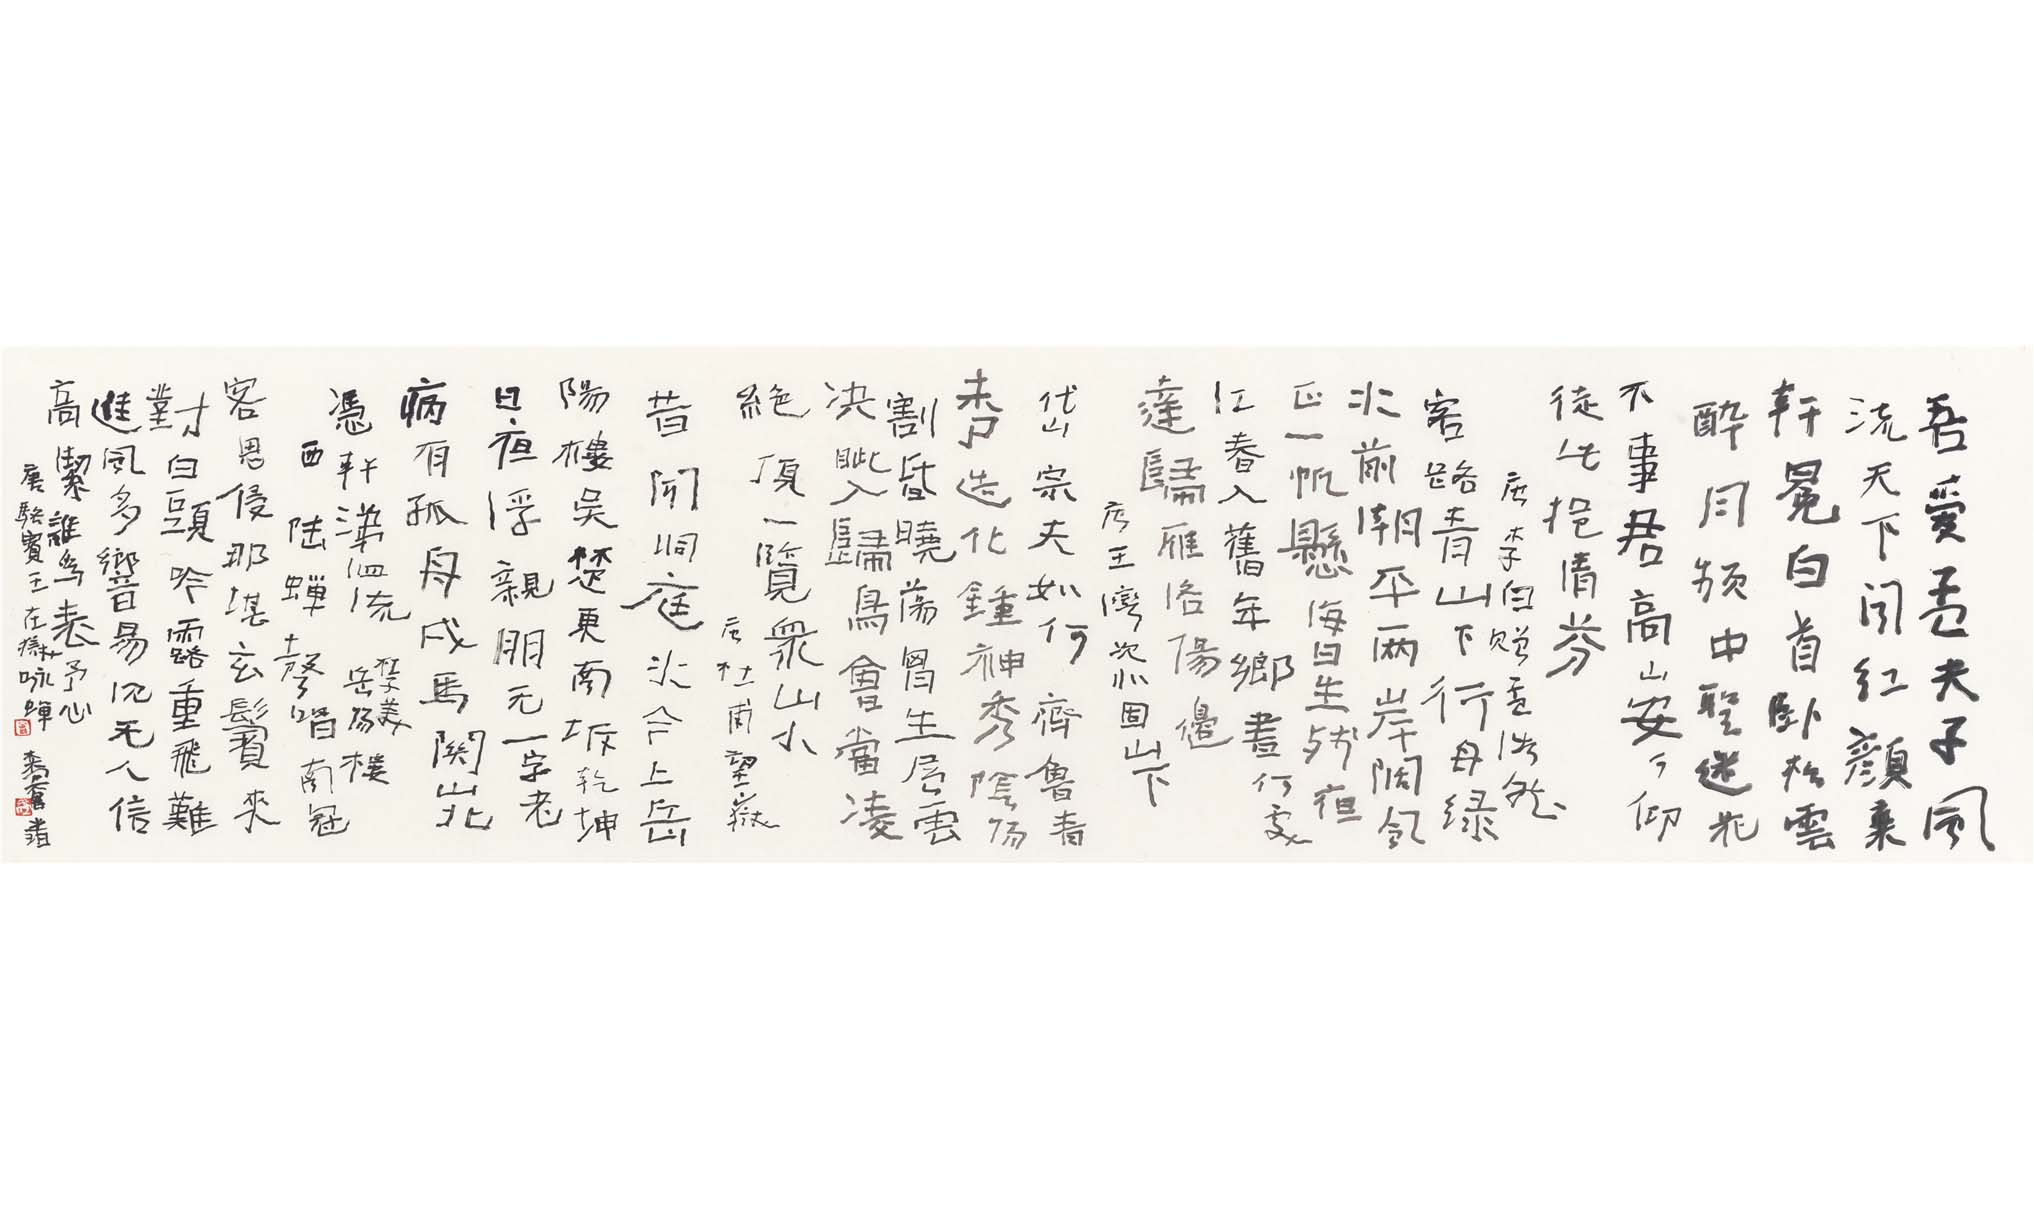 吾愛孟夫子風
流天下聞紅顏棄
軒冕白首臥松雲
醉月頻中聖迷花
不事君高山安可仰
徒此挹清芬
唐李白贈孟浩然
客路青山下行舟绿
水前潮平兩岸闊風
正一帆懸海日生殘夜
江春入舊年鄉書何處
達歸雁洛陽邊
唐王灣次北固山下
岱宗夫如何齊魯青
未了造化鍾神秀陰陽
割昏曉蕩胸生層雲
決眦入歸鳥會當凌
絕頂一覽眾山小
唐杜甫望嶽
昔聞洞庭水今上岳
陽樓吳楚東南坼乾坤
日夜浮親朋无一字老
病有孤舟戎馬關山北
憑軒涕泗流
杜子美岳陽樓
西陆蝉聲唱南冠
客思侵那堪玄鬢來
對白頭吟露重飛難
進風多響易沉无人信
高潔誰為表予心
唐駱賓王在獄咏蟬